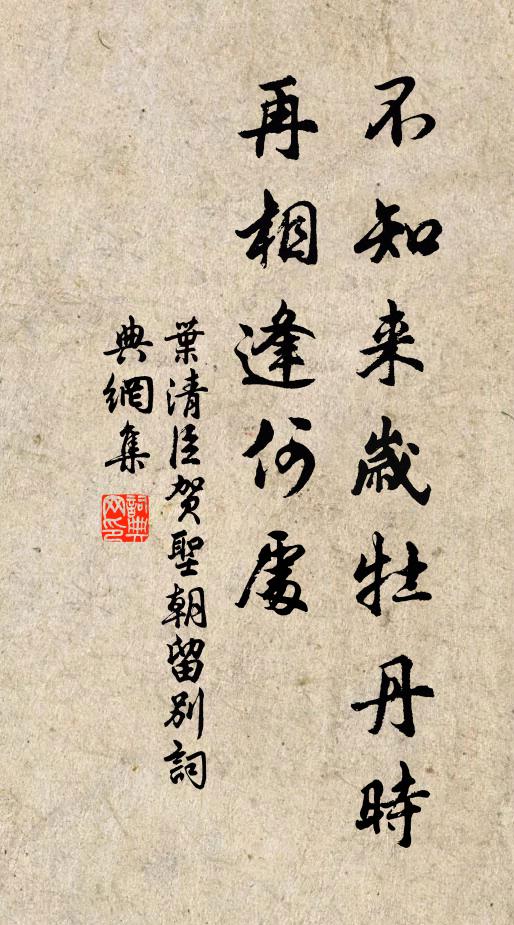 不知来歲牡丹時
再相逢何處
葉清臣賀聖朝留別詞
典網集
詞典网印